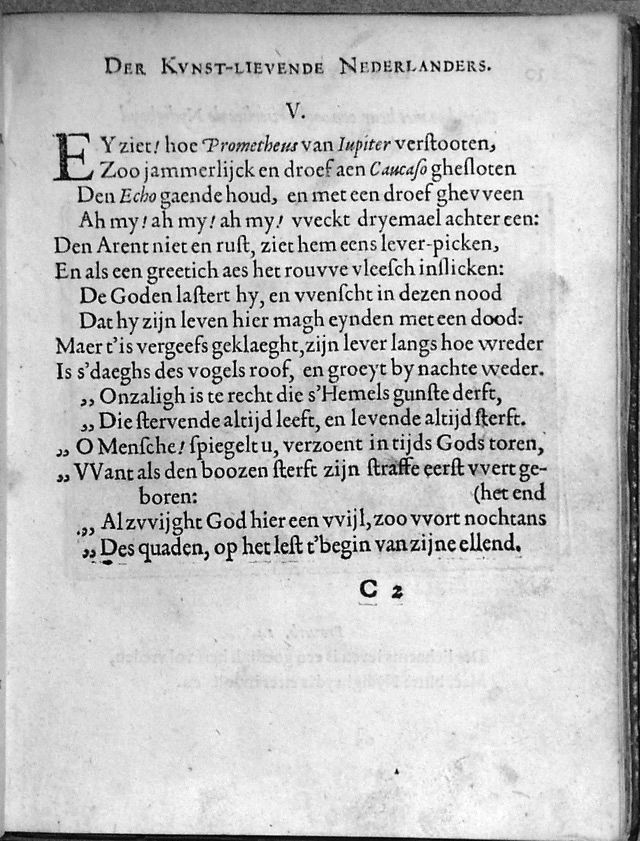 DER KVNST-LIEVENDE NEDERLANDERS.
V.
EY ziet! hoe Prometheus van Iupiter verſtooten,
Zoo jammerlijck en droef aen Caucaſo gheſloten
Den Echo gaende houd, en met een droef ghevveen
Ah my! ah my! ah my! vveckt dryemael achter een:
Den Arent niet en ruſt, ziet hem eens lever-picken,
En als een greetich aes het rouvve vleeſch inſlicken:
De Goden laſtert hy, en vvenſcht in dezen nood
Dat hy zijn leven hier magh eynden met een dood:
Maer t'is vergeefs geklaeght, zijn lever langs hoe wreder
Is s'daeghs des vogels roof, en groeyt by nachte weder.
,, Onzaligh is te recht die s'Hemels gunſte derft,
,, Die ſtervende altijd leeft, en levende altijd ſterft.
,, O Menſche! ſpiegelt u, verzoent in tijds Gods toren,
,, VVant als den boozen ſterft zijn ſtraffe eerſt vvert ge-
boren: (het end
,, Al zvvijght God hier een vvijl, zoo vvort nochtans
,, Des quaden, op het leſt t'begin van zijne ellend.
C 2